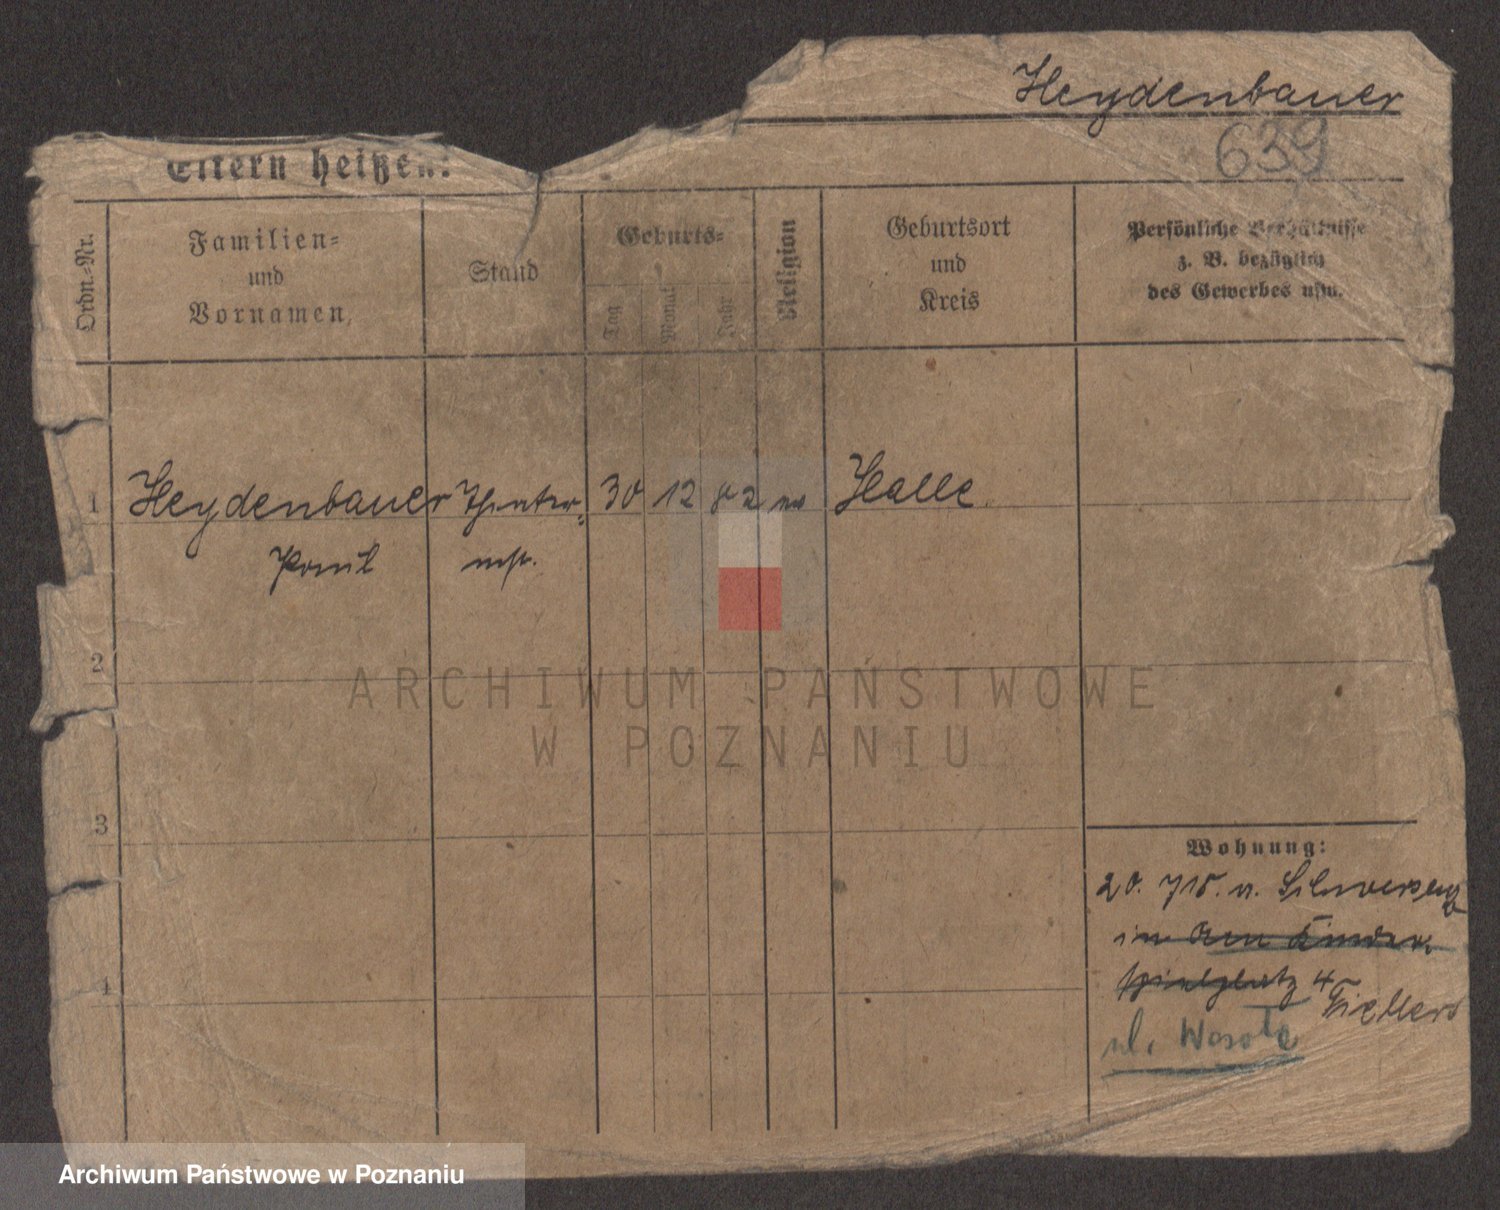 Heydenbauer
639
Eltern heißen:
Ordn.-Nr.
Familien-
und
Vornamen
Stand
Geburts-
Tag
Monat
Jahr
Religion
Geburtsort
und
Kreis
Persönliche Verhältnisse
z. B. bezüglich
des Gewerbes usw.
1 Heydenbauer Theater- 30 12 82 Halle
Paul
2
ARCHIWUM PAŃSTWOWE
W POZNANIU
3
Wohnung:
20. 7 15. v.
4
spielplatz 4
ul. Wesoła
Archiwum Państwowe w Poznaniu